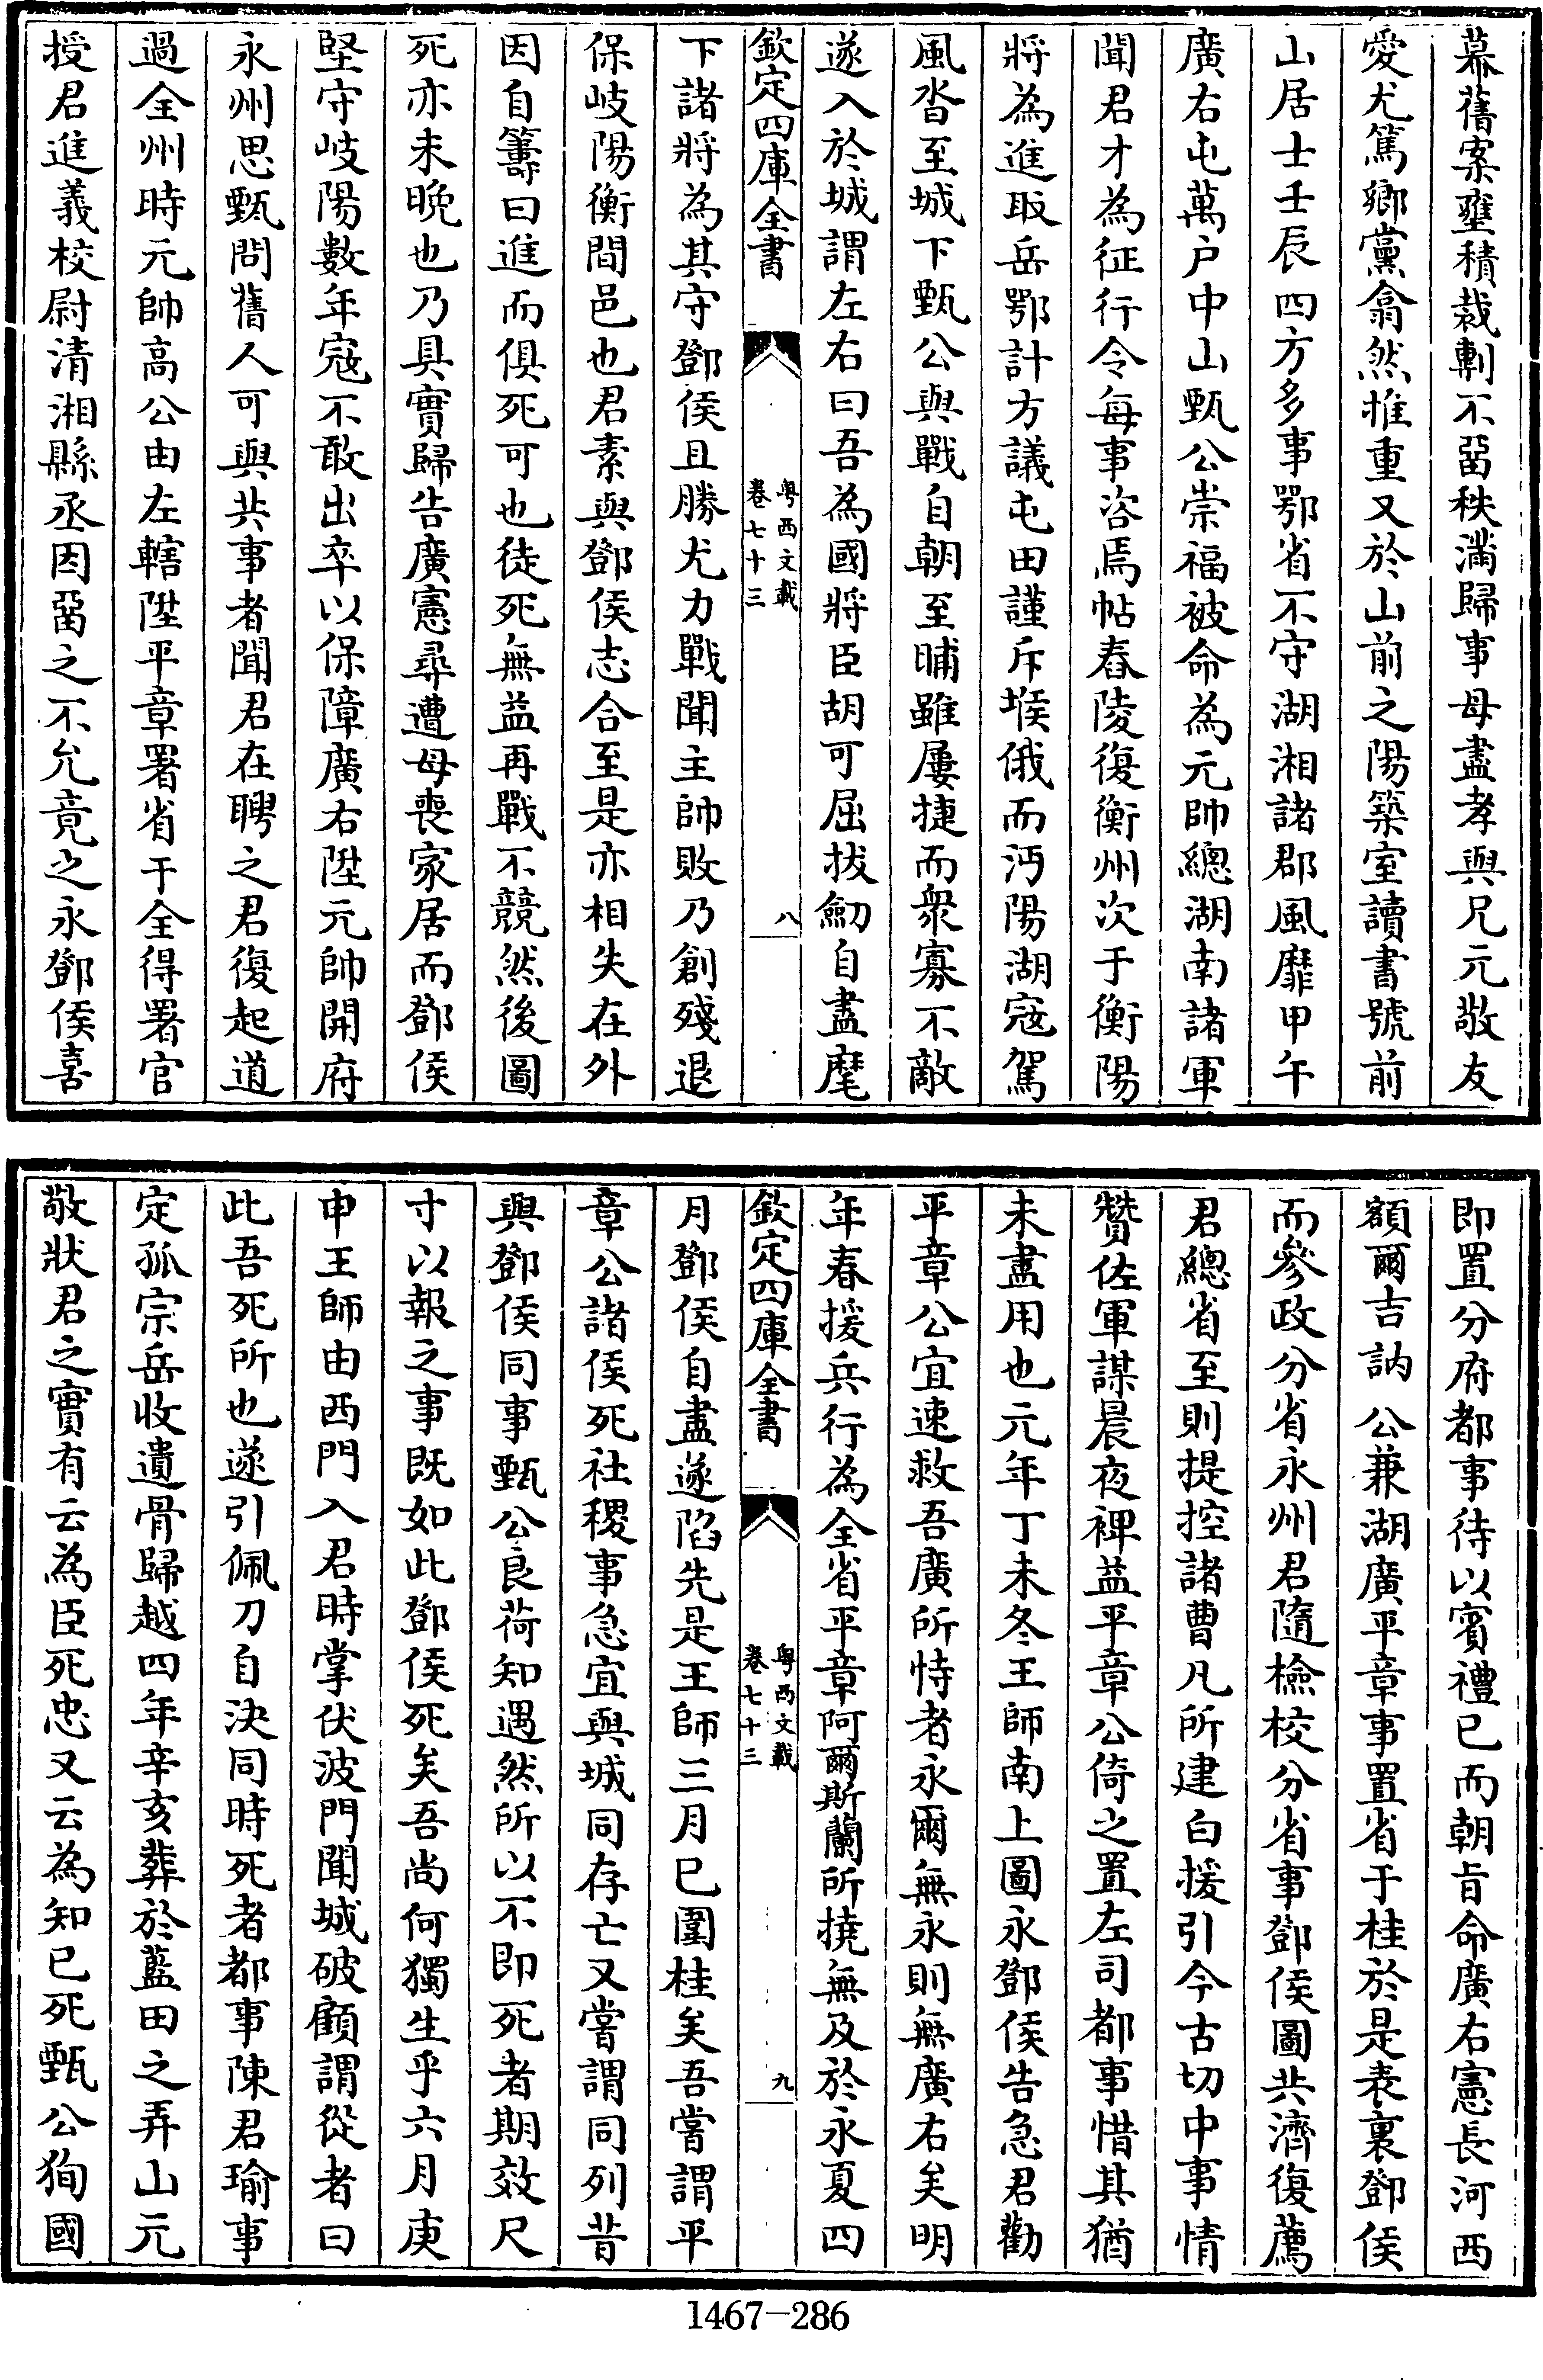 幕舊案壅積裁剸不畱秩滿歸事母盡孝與兄元敬友
愛尤篤鄉黨翕然推重又於山前之陽築室讀書號前
山居士壬辰四方多事鄂省不守湖湘諸郡風靡甲午
廣右屯萬户中山甄公崇福被命為元帥總湖南諸軍
聞君才為征行令每事咨焉帖舂陵復衡州次于衡陽
將為進取岳鄂計方議屯田謹斥堠俄而沔陽湖寇駕
風沓至城下甄公與戰自朝至晡雖屢捷而衆寡不敵
遂入於城謂左右曰吾為國將臣胡可屈拔劒自盡麾
欽定四庫全書
粤西文載
卷七十三
八
下諸將為其守鄧侯且勝尤力戰聞主帥敗乃創殘退
保岐陽衡間邑也君素與鄧侯志合至是亦相失在外
因自籌曰進而俱死可也徒死無益再戰不競然後圖
死亦未晚也乃具實歸告廣憲尋遭母喪家居而鄧侯
堅守岐陽數年寇不敢出卒以保障廣右陞元帥開府
永州思甄問舊人可與共事者聞君在聘之君復起道
過全州時元帥高公由左轄陞平章署省于全得署官
授君進義校尉清湘縣丞因畱之不允竟之永鄧侯喜
即置分府都事待以賓禮已而朝旨命廣右憲長河西
額爾吉訥公兼湖廣平章事置省于桂於是表裏鄧侯
而參政分省永州君隨檢校分省事鄧侯圖共濟復薦
君總省至則提控諸曹凡所建白援引今古切中事情
贊佐軍謀晨夜裨益平章公倚之置左司都事惜其猶
未盡用也元年丁未冬王師南上圖永鄧侯告急君勸
平章公宜速救吾廣所恃者永爾無永則無廣右矣明
年春援兵行為全省平章阿爾斯蘭所撓無及於永夏四
欽定四庫全書
粤西文載
卷七十三
九
月鄧侯自盡遂陷先是王師三月已圍桂矣吾嘗謂平
章公諸侯死社稷事急宜與城同存亡又嘗謂同列昔
與鄧侯同事甄公良荷知遇然所以不即死者期效尺
寸以報之事既如此鄧侯死矣吾尚何獨生乎六月庚
申王師由西門入君時掌伏波門聞城破顧謂從者曰
此吾死所也遂引佩刀自決同時死者都事陳君瑜事
定孤宗岳收遺骨歸越四年辛亥葬於藍田之弄山元
敬狀君之實有云為臣死忠又云為知已死甄公狥國
1467-286